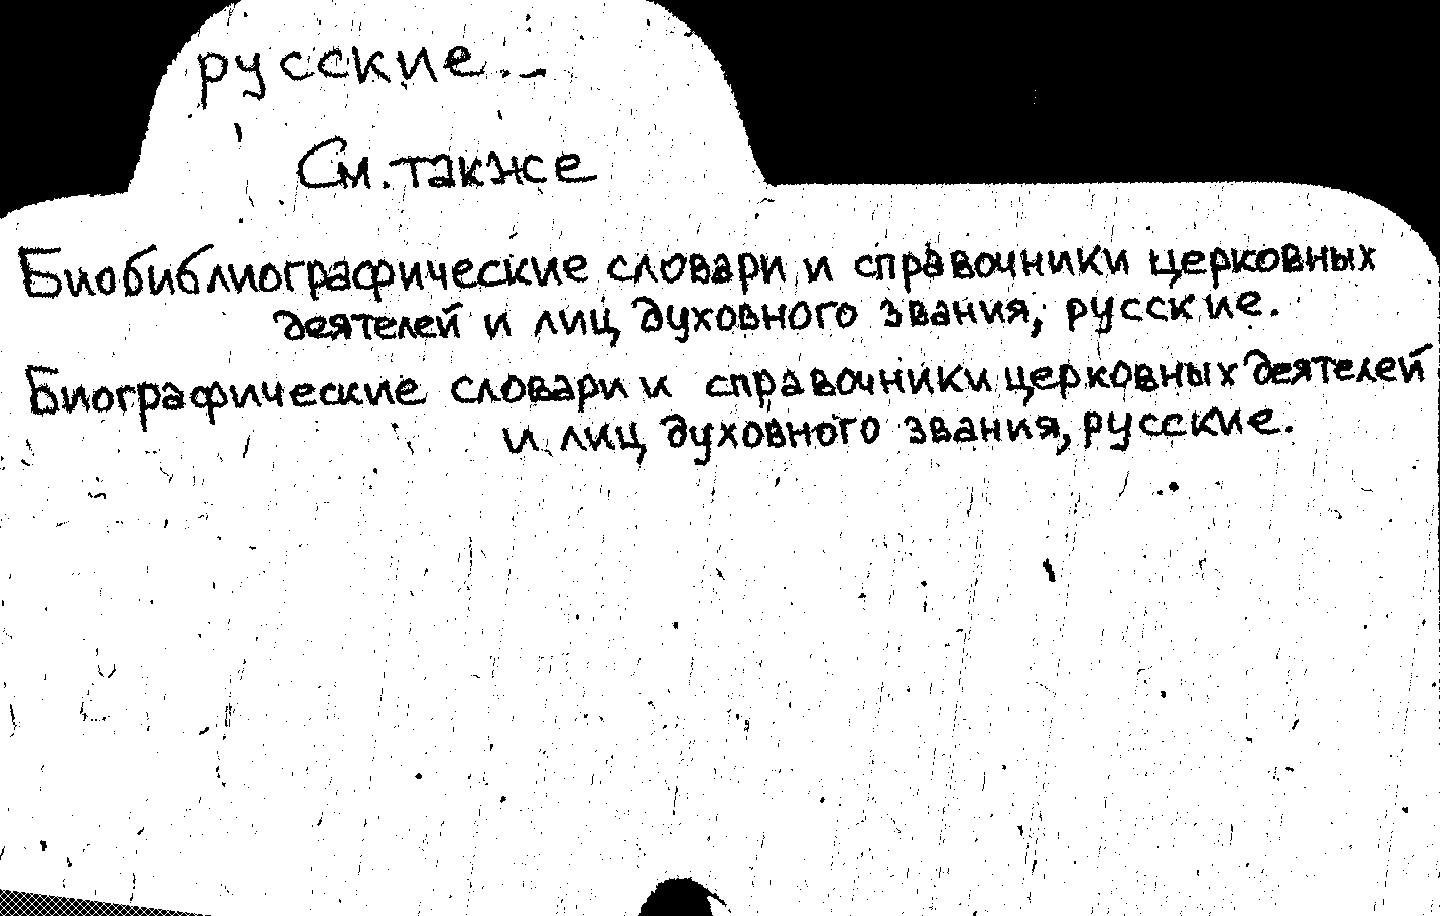 русские --
См. также
Биобиблиографические словари и справочники церковных
деятелей и лиц духовного звания, русские.
Биографические словари и справочники церковных деятелей
и лиц духовного звания, русские.